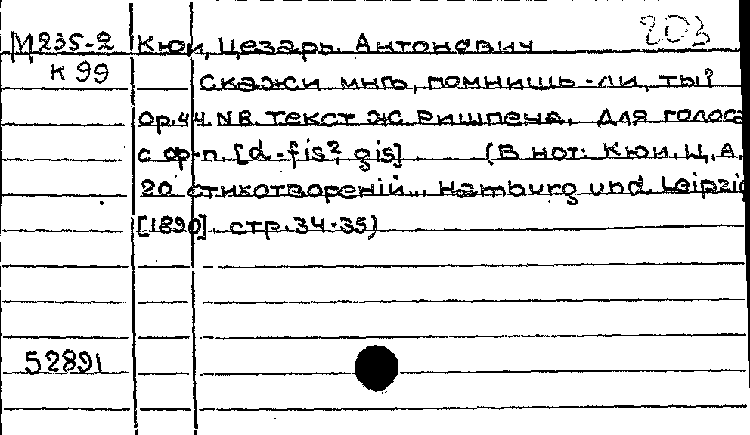 203
М235-2 Кюи, Цезарь Антонович
К 99 Скажи мнѣ, помнишь-ли, ты?
Op.44. N8. Текст Ж. Ришпена. Для голоса
с ф-п. [d-fis², gis] (В нот: Кюи, Ц.А.
20 стихотвореній... Hamburg und Leipzig
[1890] стр.34-35)
52891